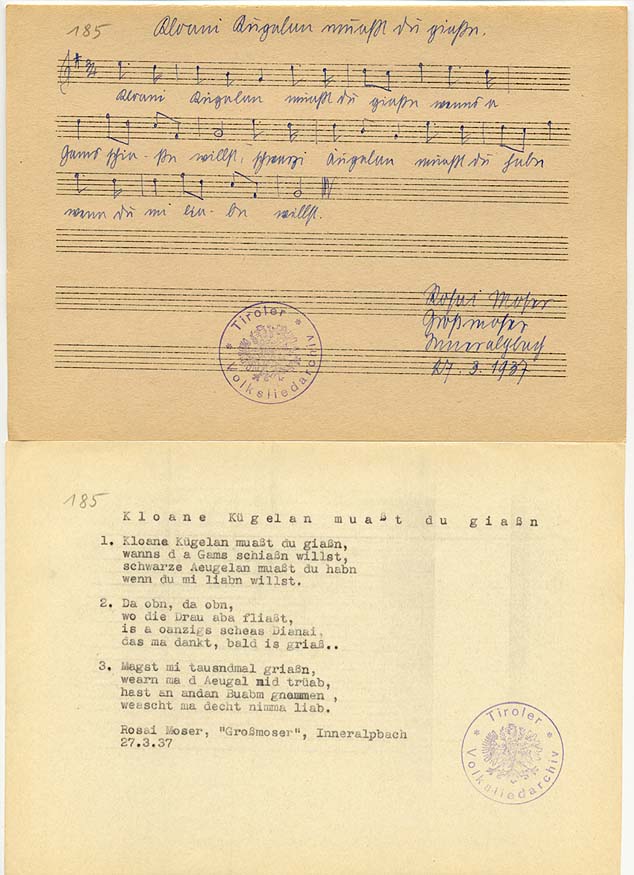 185
Kloani Kügelan muaßt du giaßn.
Kloani Kügelan muaßt du giaßn wenns a
Gams schia-ßn willst, schwarzi Äugelan muaßt du habn
wenn du mi lia-bn willst.
Rosai Moser
Großmoser
Inneralpbach
27. 3. 1937
* Tiroler *
Volksliedarchiv
185
Kloane Kügelan muaßt du giaßn
1. Kloane Kügelan muaßt du giaßn,
wanns d a Gams schiaßn willst,
schwarze Aeugelan muaßt du habn
wenn du mi liabn willst.
2. Da obn, da obn,
wo die Drau aba fliaßt,
is a oanzigs scheas Dianai,
das ma dankt, bald is griaß..
3. Magst mi tausndmal griaßn,
wearn ma d Aeugal nid trüab,
hast an andan Buabm gnommen ,
weascht ma decht nimma liab.
Rosai Moser, "Großmoser", Inneralpbach
27.3.37
* Tiroler *
Volksliedarchiv